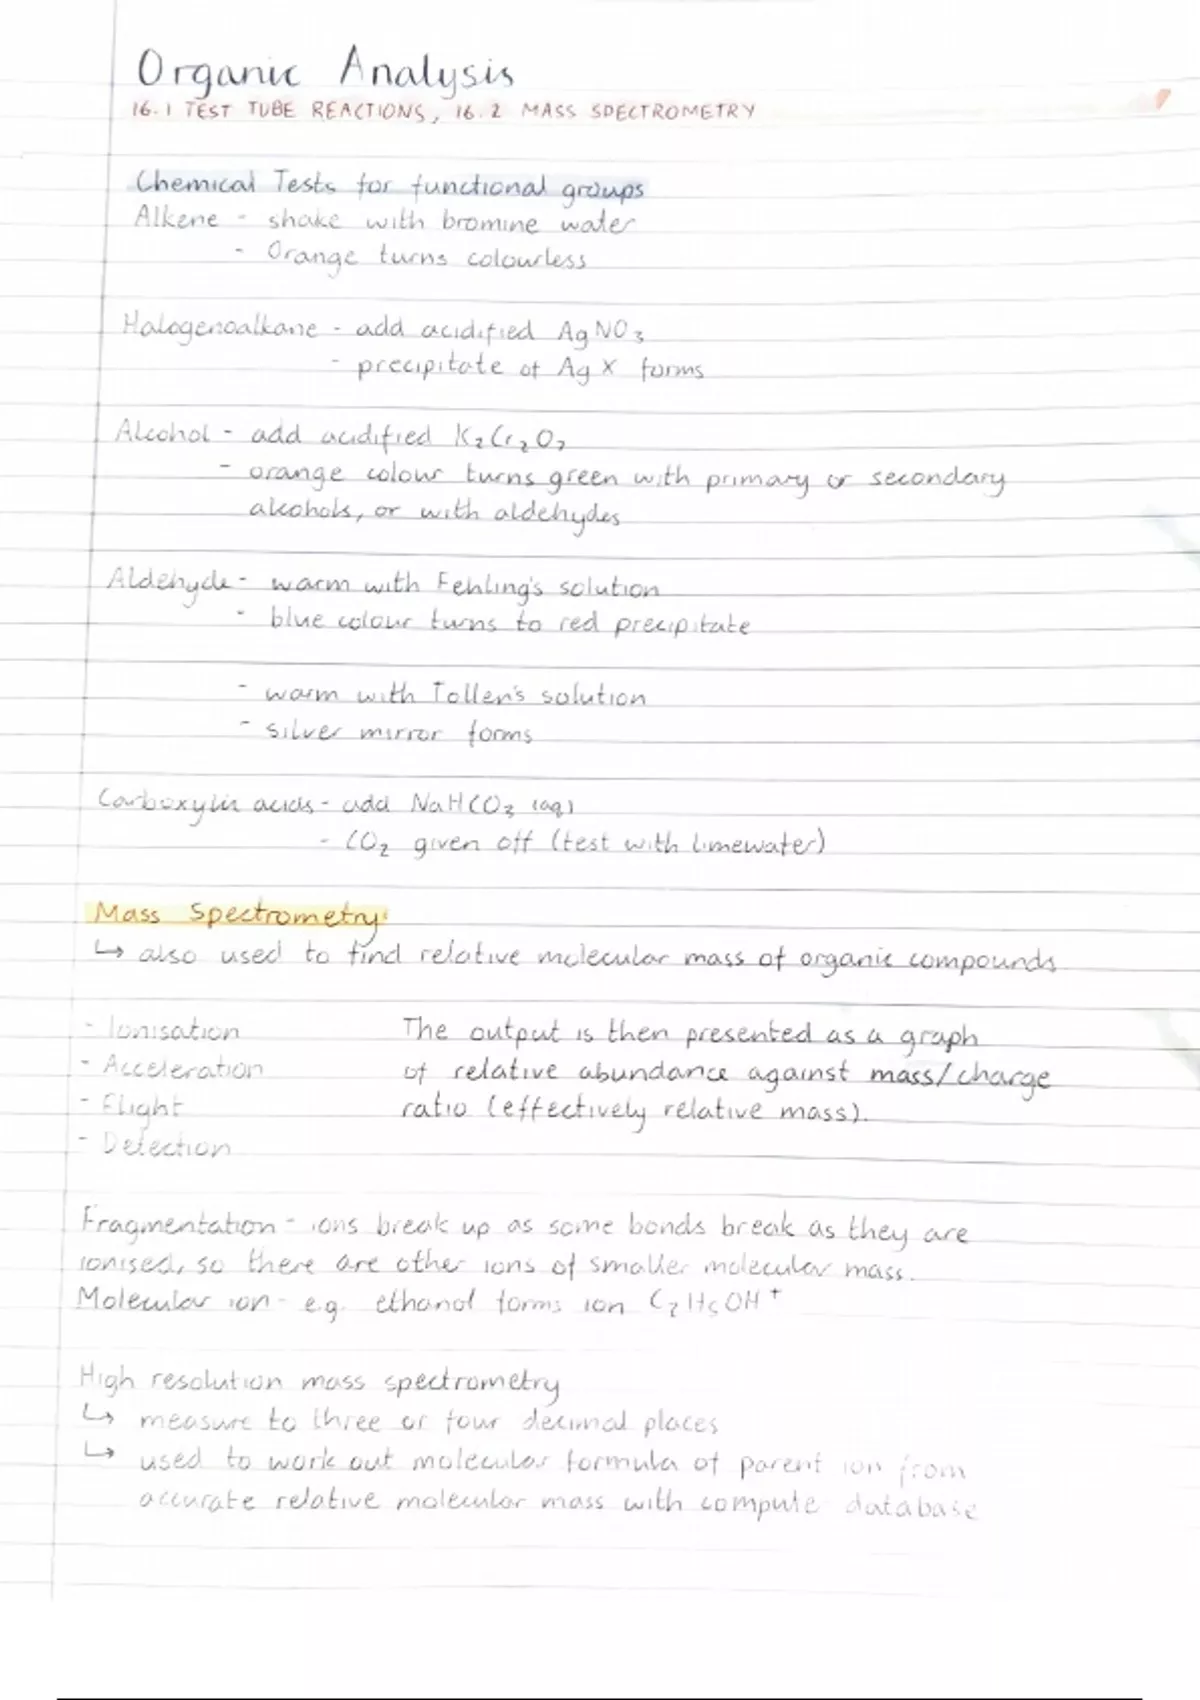 Organic Analysis
16.1 TEST TUBE REACTIONS, 16.2 MASS SPECTROMETRY
Chemical Tests for functional groups
Alkene - shake with bromine water
- Orange turns colourless
Halogenoalkane - add acidified AgNO₃
- precipitate of AgX forms
Alcohol - add acidified K₂Cr₂O₇
- orange colour turns green with primary or secondary
alcohols, or with aldehydes
Aldehyde - warm with Fehling's solution
- blue colour turns to red precipitate
- warm with Tollen's solution
- silver mirror forms
Carboxylic acids - add NaHCO₃ (aq)
- CO₂ given off (test with limewater)
Mass Spectrometry
↳ also used to find relative molecular mass of organic compounds
- Ionisation
- Acceleration
- Flight
- Detection
The output is then presented as a graph
of relative abundance against mass/charge
ratio (effectively relative mass).
Fragmentation - ions break up as some bonds break as they are
ionised, so there are other ions of smaller molecular mass.
Molecular ion - e.g. ethanol forms ion C₂H₅OH⁺
High resolution mass spectrometry
↳ measure to three or four decimal places
↳ used to work out molecular formula of parent ion from
accurate relative molecular mass with compute database